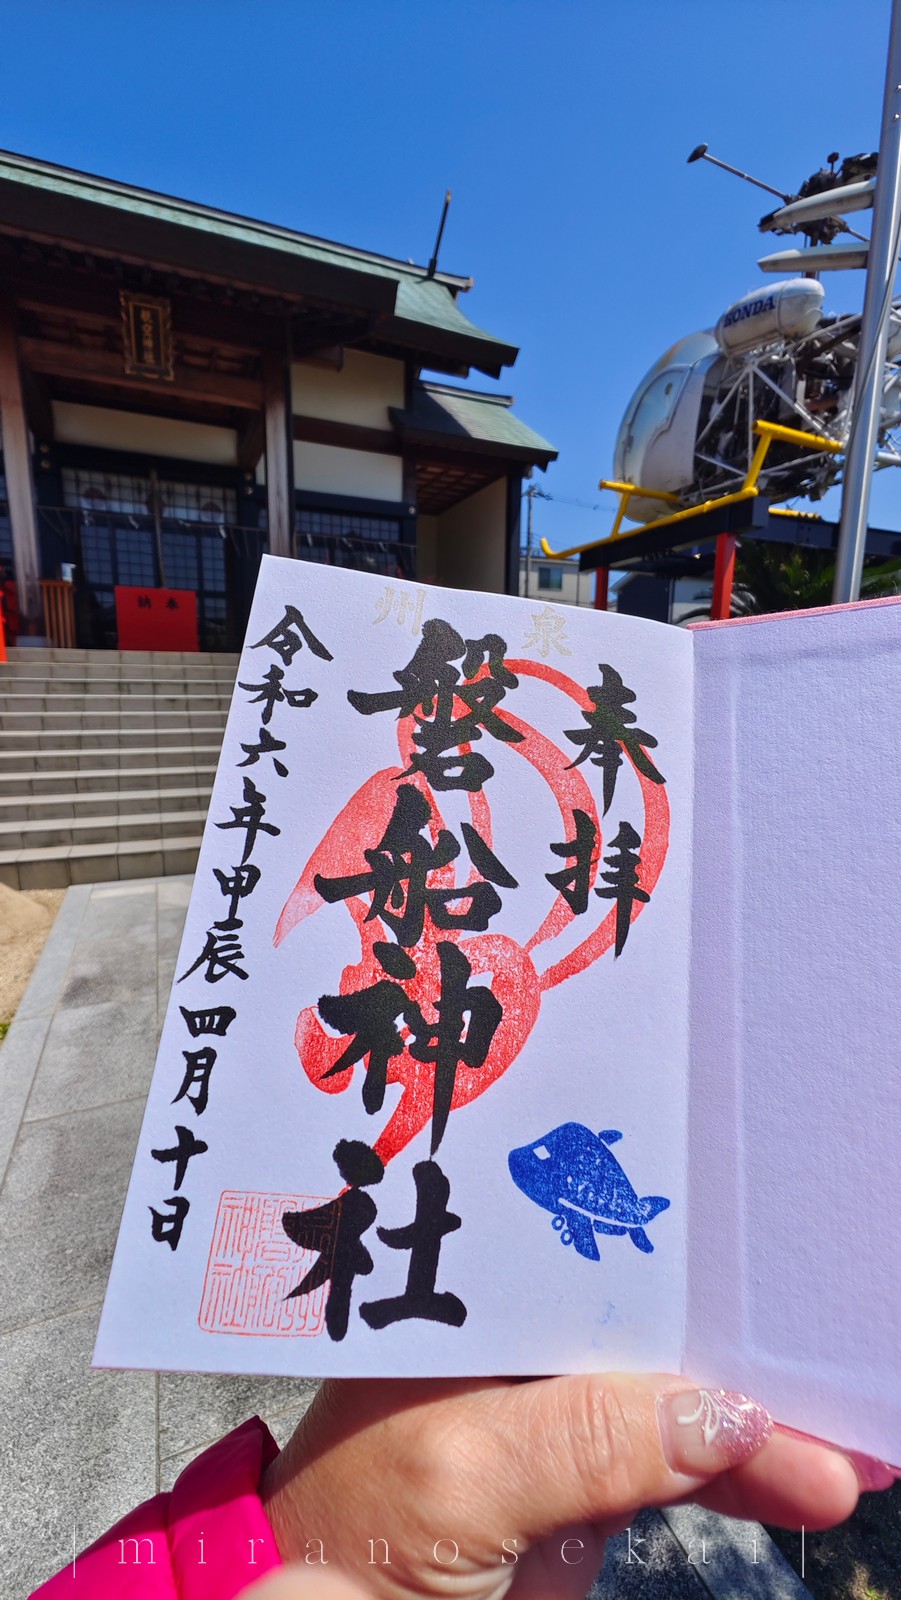 航空神社
HONDA
奉納
泉州
奉拝
磐船神社
令和六年甲辰四月十日
|miranosekai|